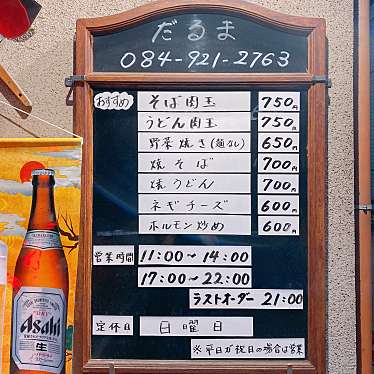 だるま
084-921-2763
おすすめ
そば肉玉 750円
うどん肉玉 750円
野菜焼き(麺なし) 650円
焼そば 700円
焼うどん 700円
ネギチーズ 600円
ホルモン炒め 600円
営業時間 11:00～14:00
17:00～22:00
ラストオーダー 21:00
定休日 日曜日
※平日が祝日の場合は営業
Asahi
生